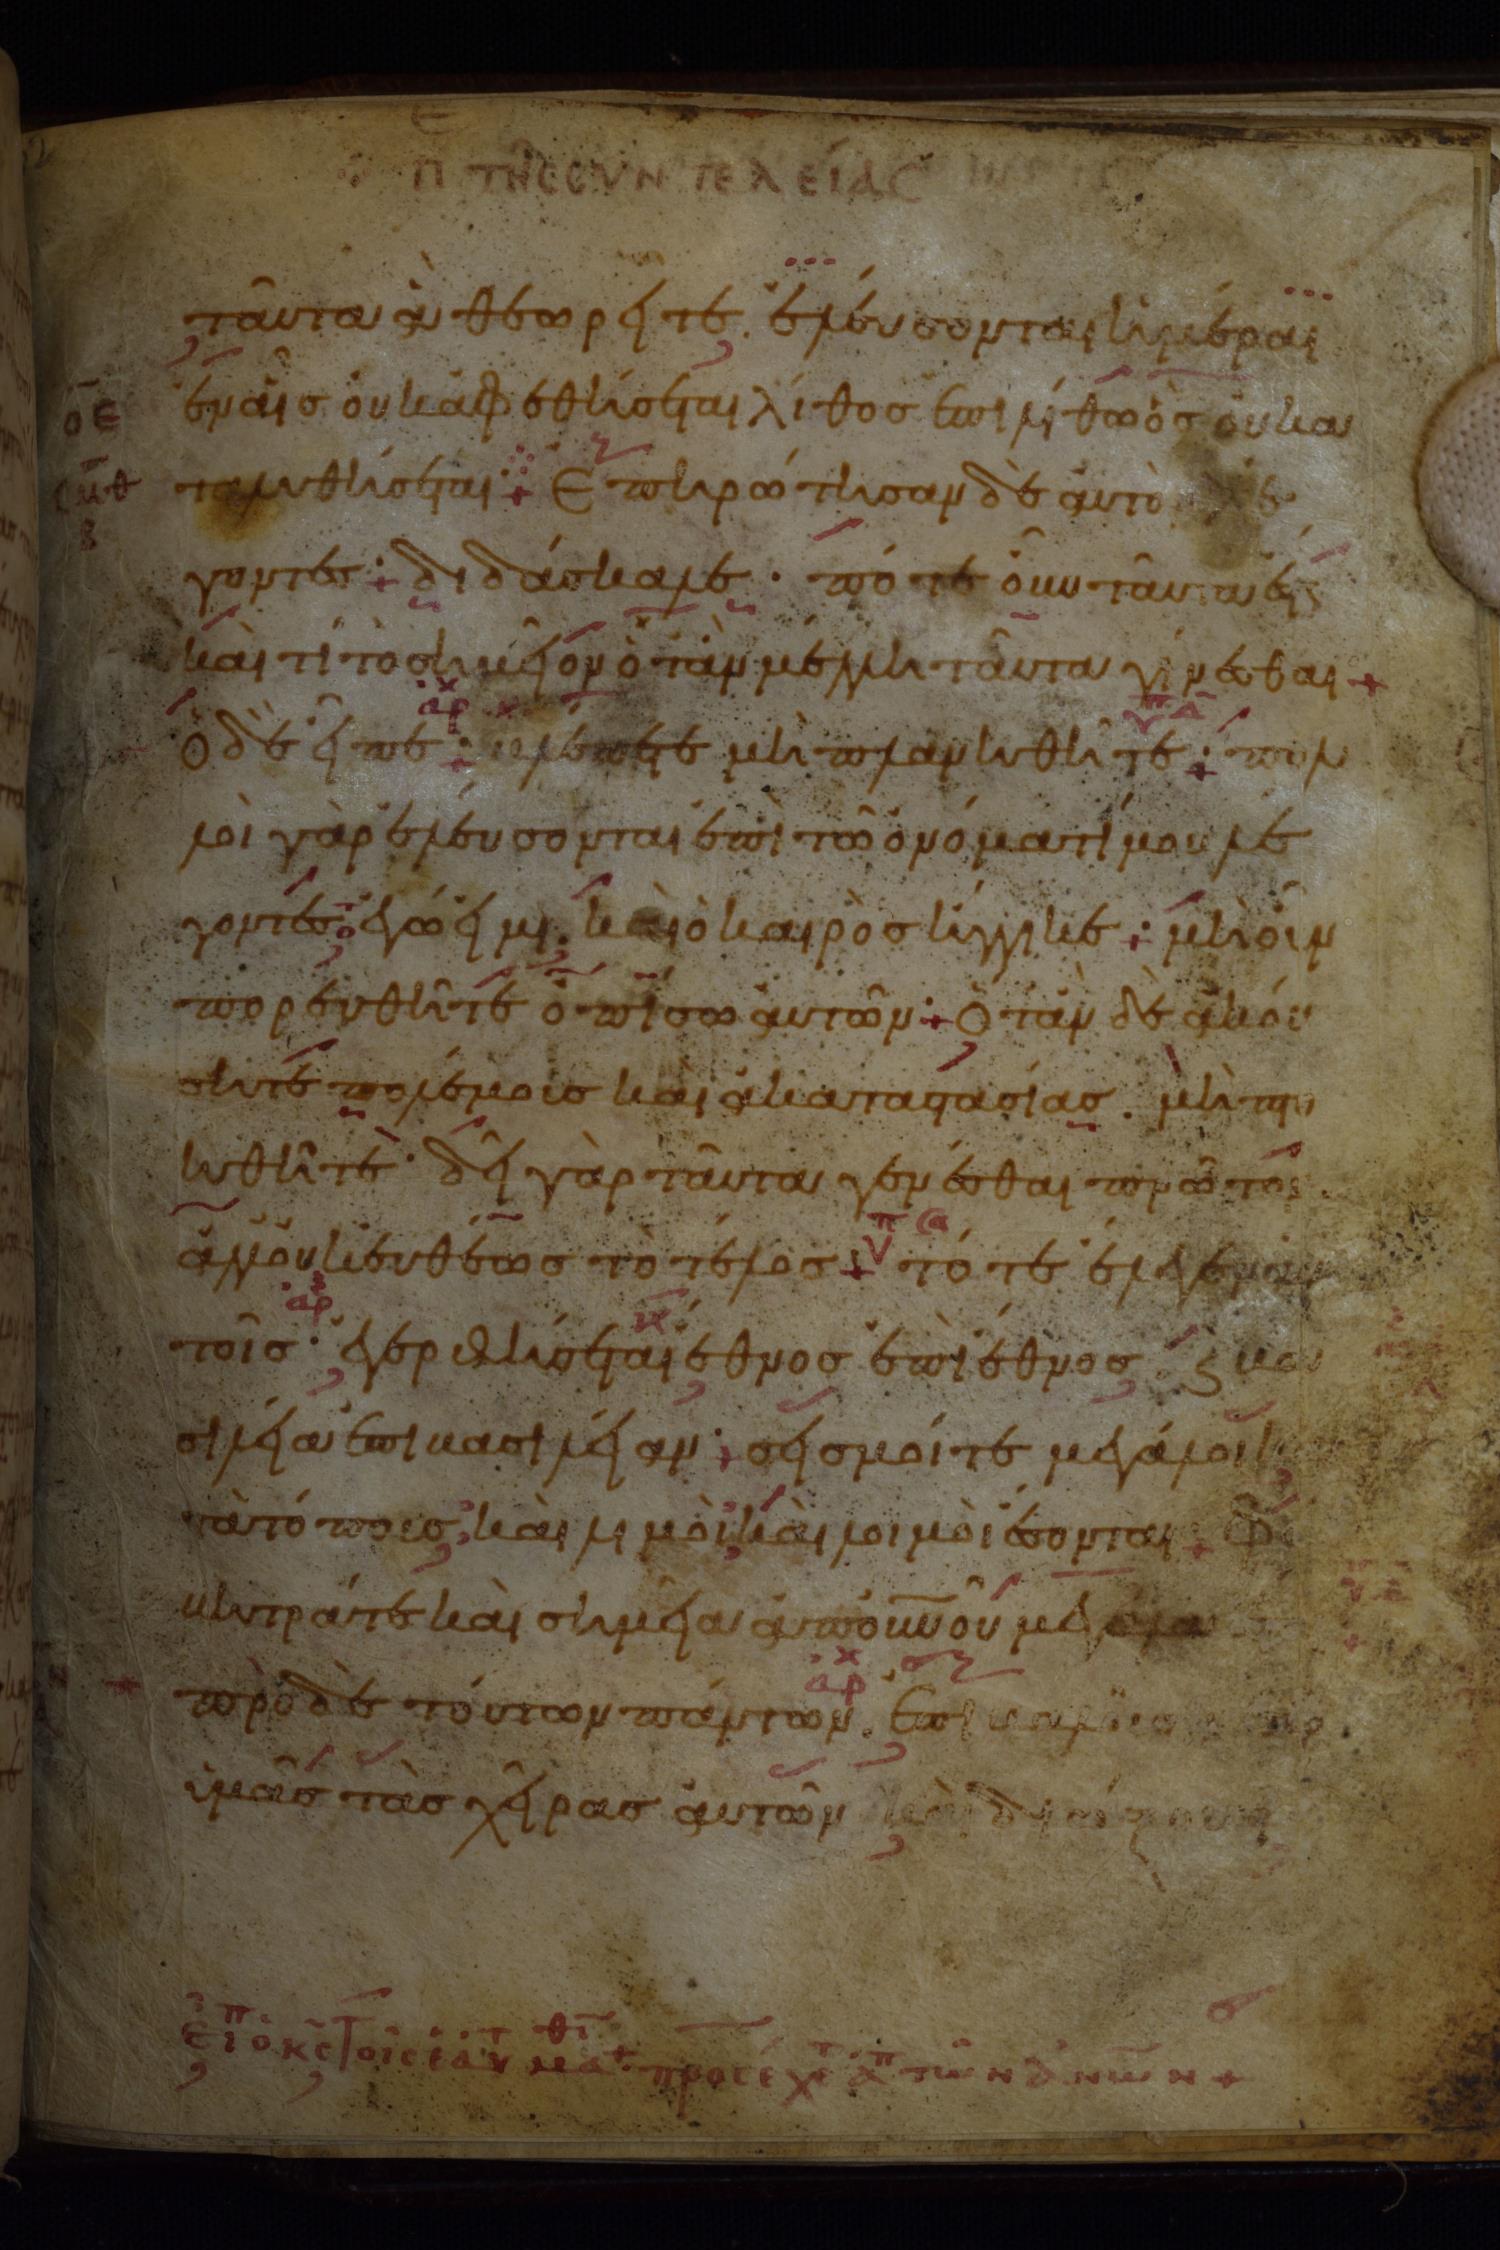 Π ΤΗΣ ΣΥΝΤΕΛΕΙΑΣ
ταῦτα ἃ θεωρεῖτε. ἐλεύσονται ἡμέραι
ἐν αἷς οὐκ ἀφεθήσεται λίθος ἐπὶ λίθω ὃς οὐ κα
ταλυθήσεται: Ἐπηρώτησαν δὲ αὐτὸ
γοντες· διδάσκαλε· πότε οὖν ταῦτα ἔς
καὶ τί τὸ σημεῖον ὅταν μέλλη ταῦτα γίνεσθαι +
Ὁ δὲ εἶπε: βλέπετε μὴ πλανηθῆτε· πολ
λοὶ γὰρ ἐλεύσονται ἐπὶ τῶ ὀνόματί μου λέ
γοντες ἐγώ εἰμι. καὶ ὁ καιρὸς ἤγγικε: μὴ οὖν
πορευθῆτε ὀπίσω αὐτῶν· Ὅταν δὲ ἀκού
σητε πολέμοις καὶ ἀκαταστασίας. μὴ πτο
ηθῆτε· δεῖ γὰρ ταῦτα γενέσθαι πρῶτον
ἀλλ' οὐκ εὐθέως τὸ τέλος + τότε ἔλεγεν αὐ
τοῖς· ἐγερθήσεται ἔθνος ἐπὶ ἔθνος. ϗ βα
σιλεία ἐπὶ βασιλείαν· σεισμοί τε μεγάλοι κ
ατὰ τόποις καὶ λιμοὶ καὶ λοιμοὶ ἔσονται + Φό
βητρά τε καὶ σημεῖα ἀπὸ οὐνοῦ μεγάλα
πρὸ δὲ τούτων πάντων. ἐπιβαλοῦσιν
ὑμᾶς τὰς χεῖρας αὐτῶν καὶ διώξουσι
ος
σμθ
β
εἶπ ὁ κς τοῖς ἑαυτ μαθτ προσέχετ ἀπ τῶν ἀνων +